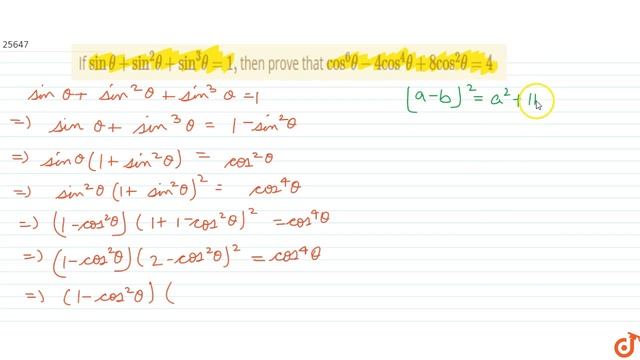 25647
If sin θ + sin²θ + sin³θ = 1, then prove that cos⁶θ − 4cos⁴θ + 8cos²θ = 4
sin θ + sin²θ + sin³θ = 1
=) sin θ + sin³θ = 1 − sin²θ
=) sin θ (1 + sin²θ) = cos²θ
=) sin²θ (1 + sin²θ)² = cos⁴θ
=) (1 − cos²θ) (1 + 1 − cos²θ)² = cos⁴θ
=) (1 − cos²θ) (2 − cos²θ)² = cos⁴θ
=) (1 − cos²θ) (
(a − b)² = a² +